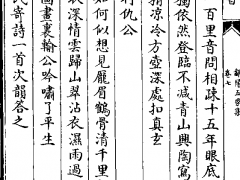 鄱陽五家集
卷七
百里音問相疎十五年眼底
獨依然登臨不減青山興陶寫
涼冷方壺深處扣真玄
仇公
如何似想見龎眉鶴骨清千里
深情雲歸山翠沾衣濕雨過
圖畫裏輸公吟嘯了平生
寄詩一首次韻答之